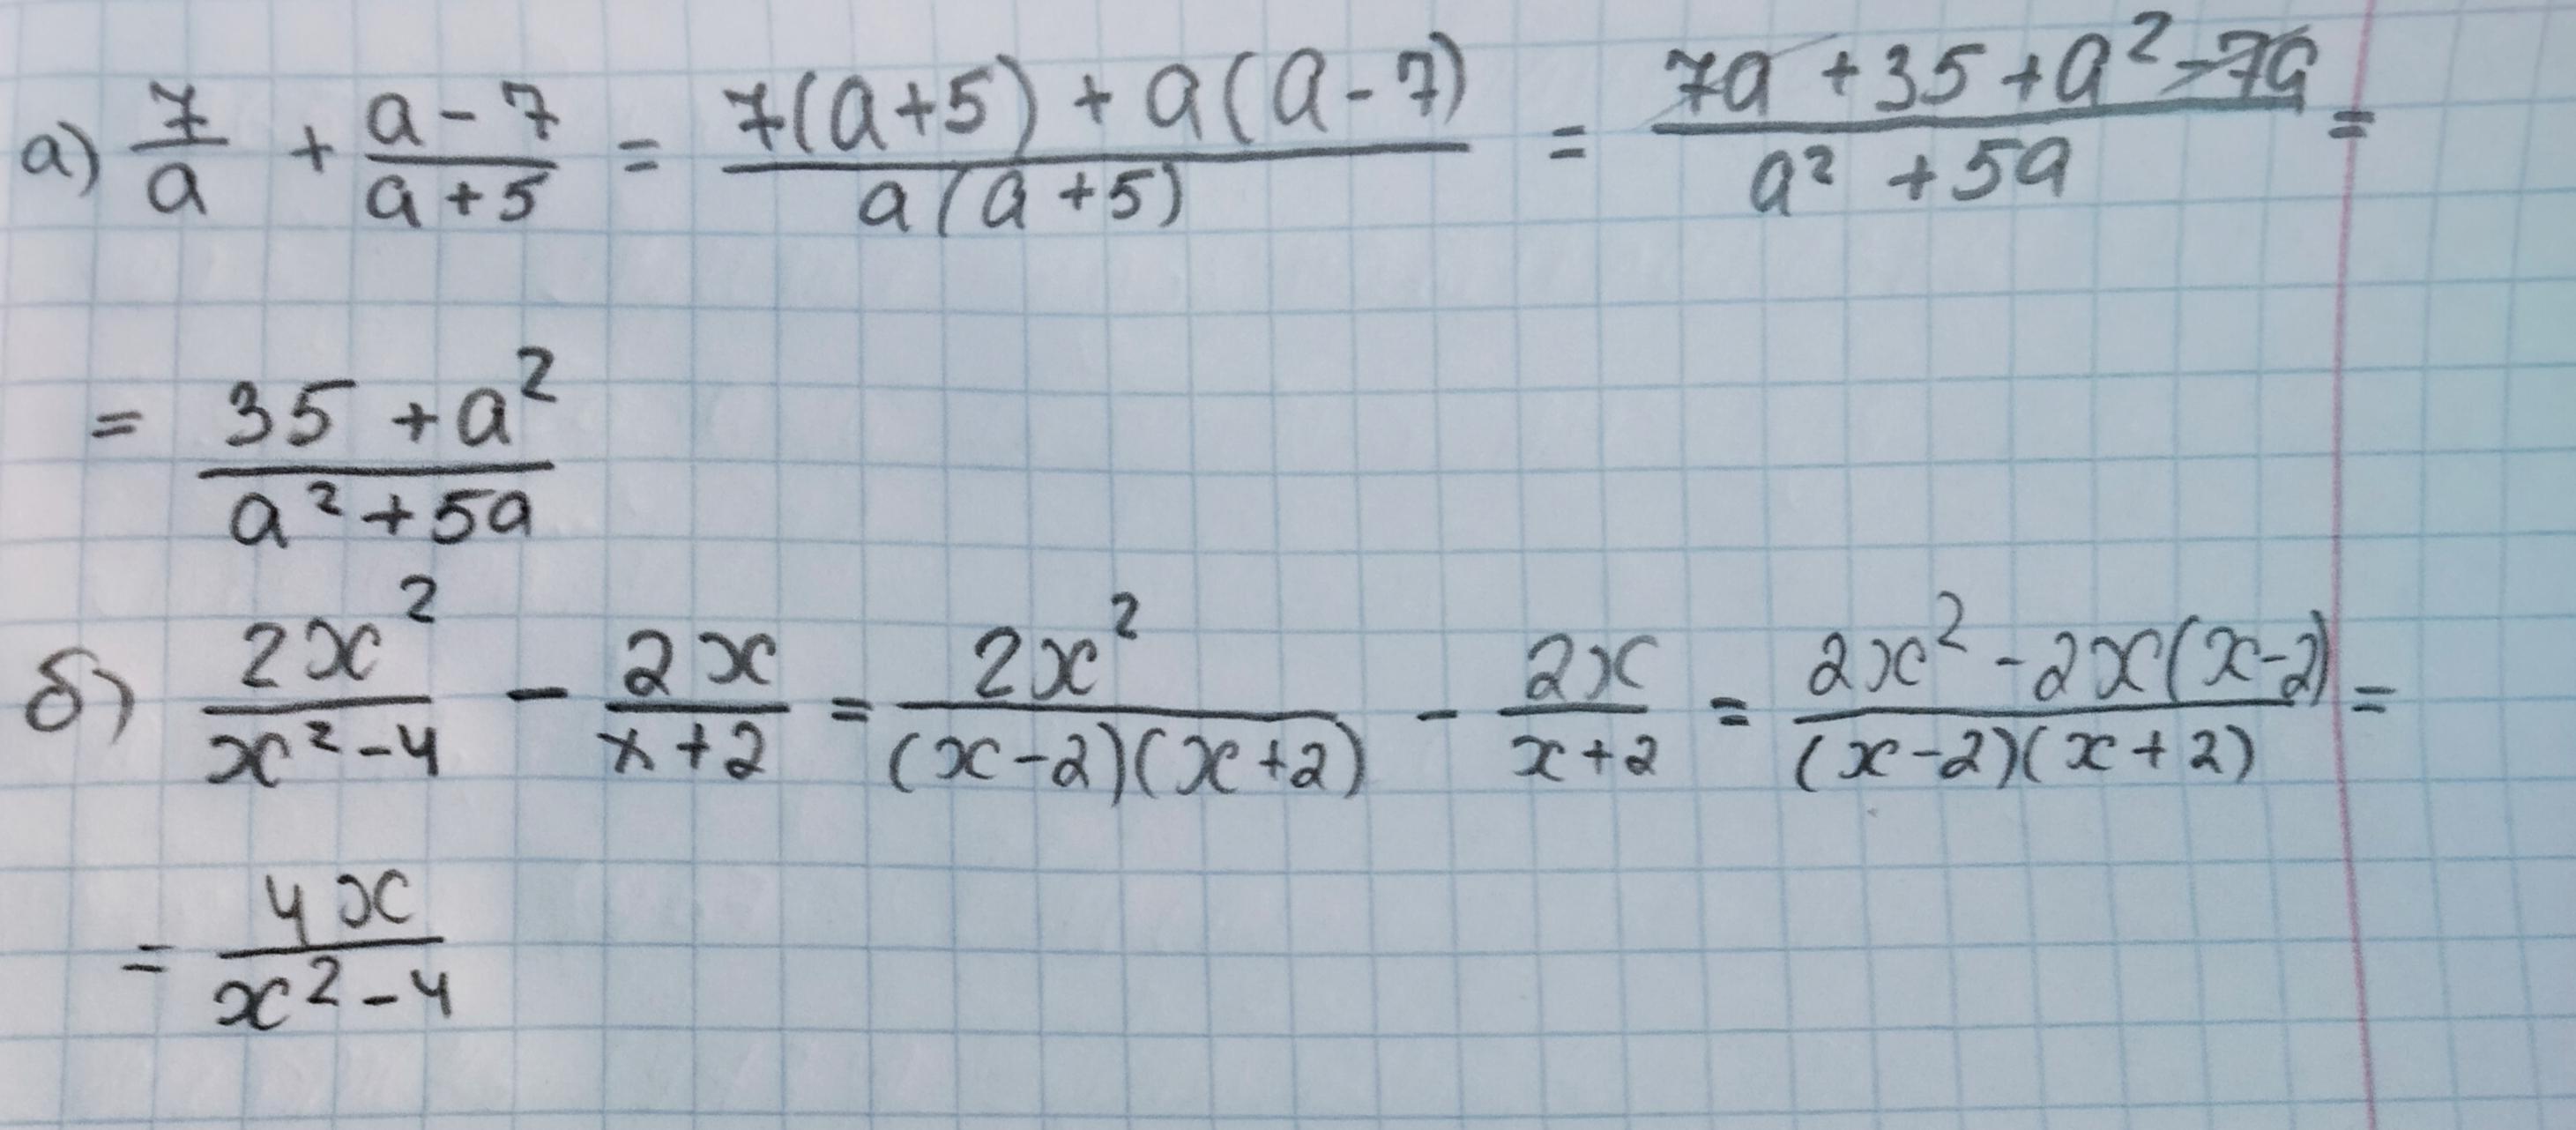 а) 7/a + (a-7)/(a+5) = (7(a+5) + a(a-7))/(a(a+5)) = (7a+35+a²-7a)/(a²+5a) =
= (35+a²)/(a²+5a)
б) 2x²/(x²-4) - 2x/(x+2) = 2x²/((x-2)(x+2)) - 2x/(x+2) = (2x²-2x(x-2))/((x-2)(x+2)) =
= 4x/(x²-4)